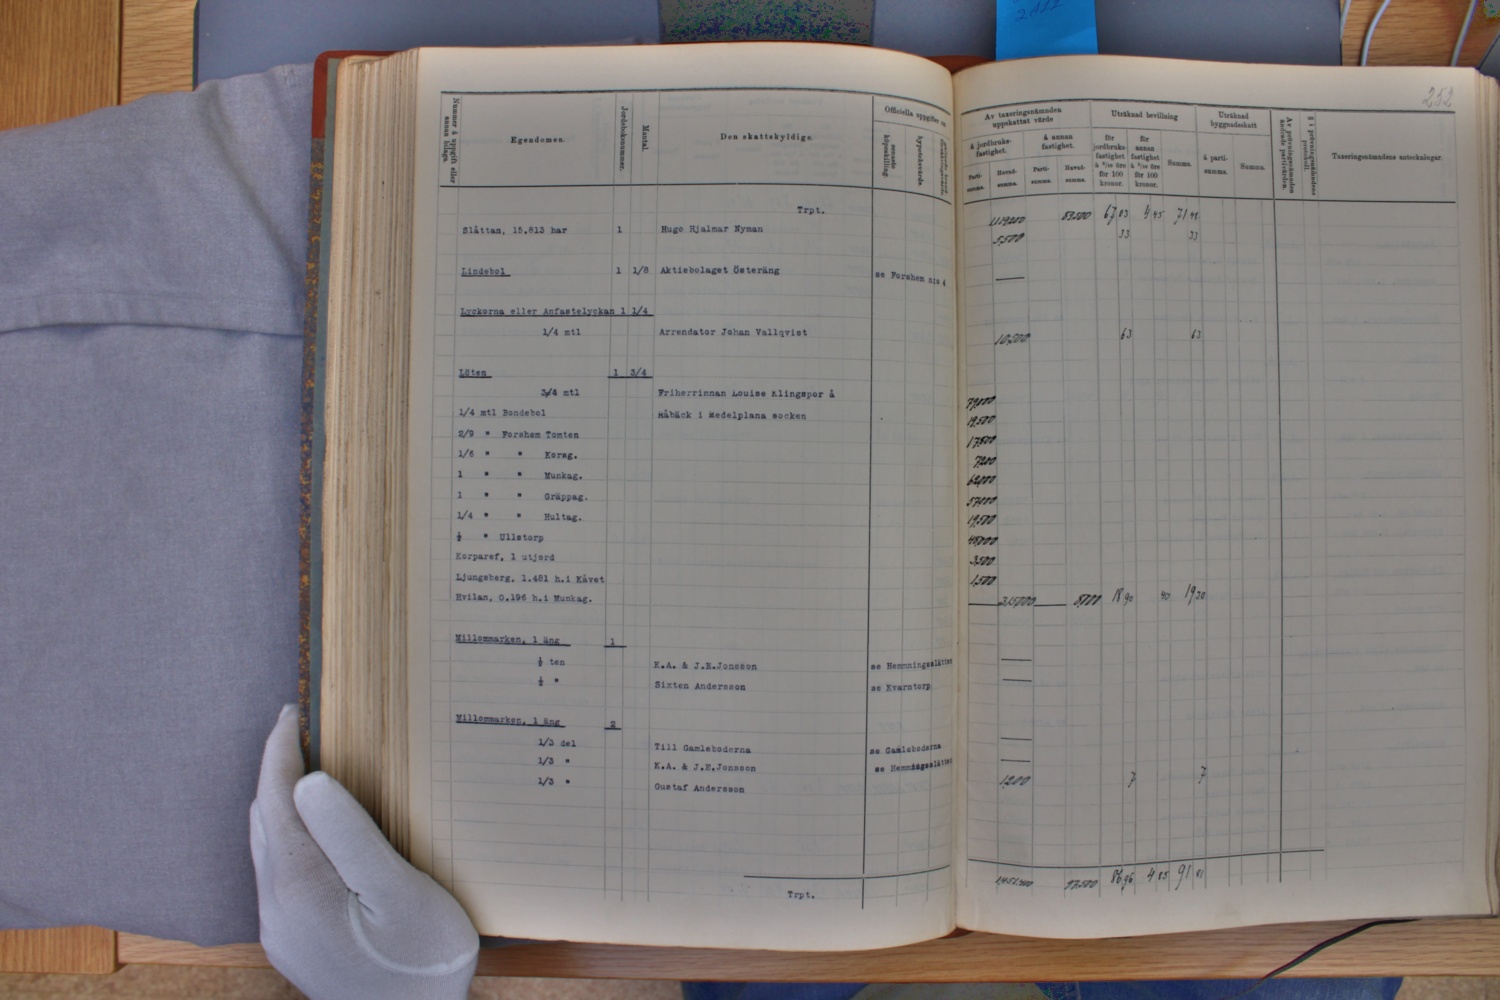 252
Nummer å uppgift eller annan bilaga.
Egendomen.
Jordeboksnummer.
Mantal.
Den skattskyldige.
Officiella uppgifter om
senaste köpeskilling.
hypoteksvärde.
Av taxeringsnämnden uppskattat värde
å jordbruksfastighet.
å annan fastighet.
Partisumma.
Huvudsumma.
Partisumma.
Huvudsumma.
Uträknad bevillning
för jordbruksfastighet å 6/10 öre för 100 kronor.
för annan fastighet å 5/10 öre för 100 kronor.
Summa.
Uträknad byggnadsskatt
å partisumma.
Summa.
Av prövningsnämnden ändrade partivärden.
§ i prövningsnämndens protokoll.
Taxeringsnämndens anteckningar.
Trpt. 67 03 4 45 71 48
Slåttan, 15.813 har 1 Hugo Hjalmar Nyman 5,500 33 33
Lindebol 1 1/8 Aktiebolaget Österäng se Forshem n:o 4
Lyckorna eller Anfastelyckan 1 1/4
1/4 mtl Arrendator Johan Vallqvist 10,500 63 63
Löten 1 3/4
3/4 mtl Friherrinnan Louise Klingspor å 79,000
1/4 mtl Bondebol Råbäck i Medelplana socken 19,500
2/9 " Forshem Tomten 17,800
1/6 " " Korsg. 7,200
1 " " Munkag. 62,000
1 " " Gräppag. 57,000
1/4 " " Hultag. 19,500
½ " Ullstorp 48,000
Korparef, 1 utjord 3,500
Ljungsberg, 1.481 h.i Kåvet 1,500
Hvilan, 0.196 h.i Munkag. 315,000 8,000 18 90 40 19 30
Millommarken, 1 äng 1
½ ten K.A. & J.E.Jonsson se Hemmingsslätten
½ " Sixten Andersson se Kvarntorp
Millommarken, 1 äng 2
1/3 del Till Gamleboderna se Gamleboderna
1/3 " K.A. & J.E.Jonsson se Hemmingsslätten
1/3 " Gustaf Andersson 1,200 7 7
Trpt. 86 96 4 85 91 81